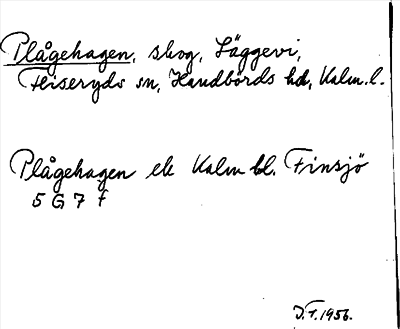 Plågehagen, skog, Läggevi,
Fliseryds sn, Handbörds hd, Kalm. l.
Plågehagen ek Kalm bl. Finsjö
5 G 7 f
J.F. 1956.